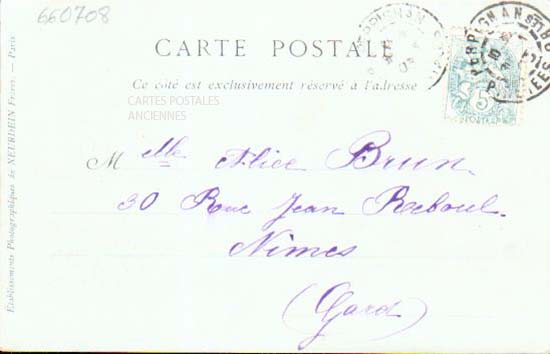 660708
CARTE POSTALE
Ce côté est exclusivement réservé à l'adresse
CARTES POSTALES
ANCIENNES
Melle Alice Brun
30 Rue Jean Reboul.
Nîmes
(Gard)
PERPIGNAN
5
POSTES
Etablissements Photographiques de NEURDEIN Frères. — Paris